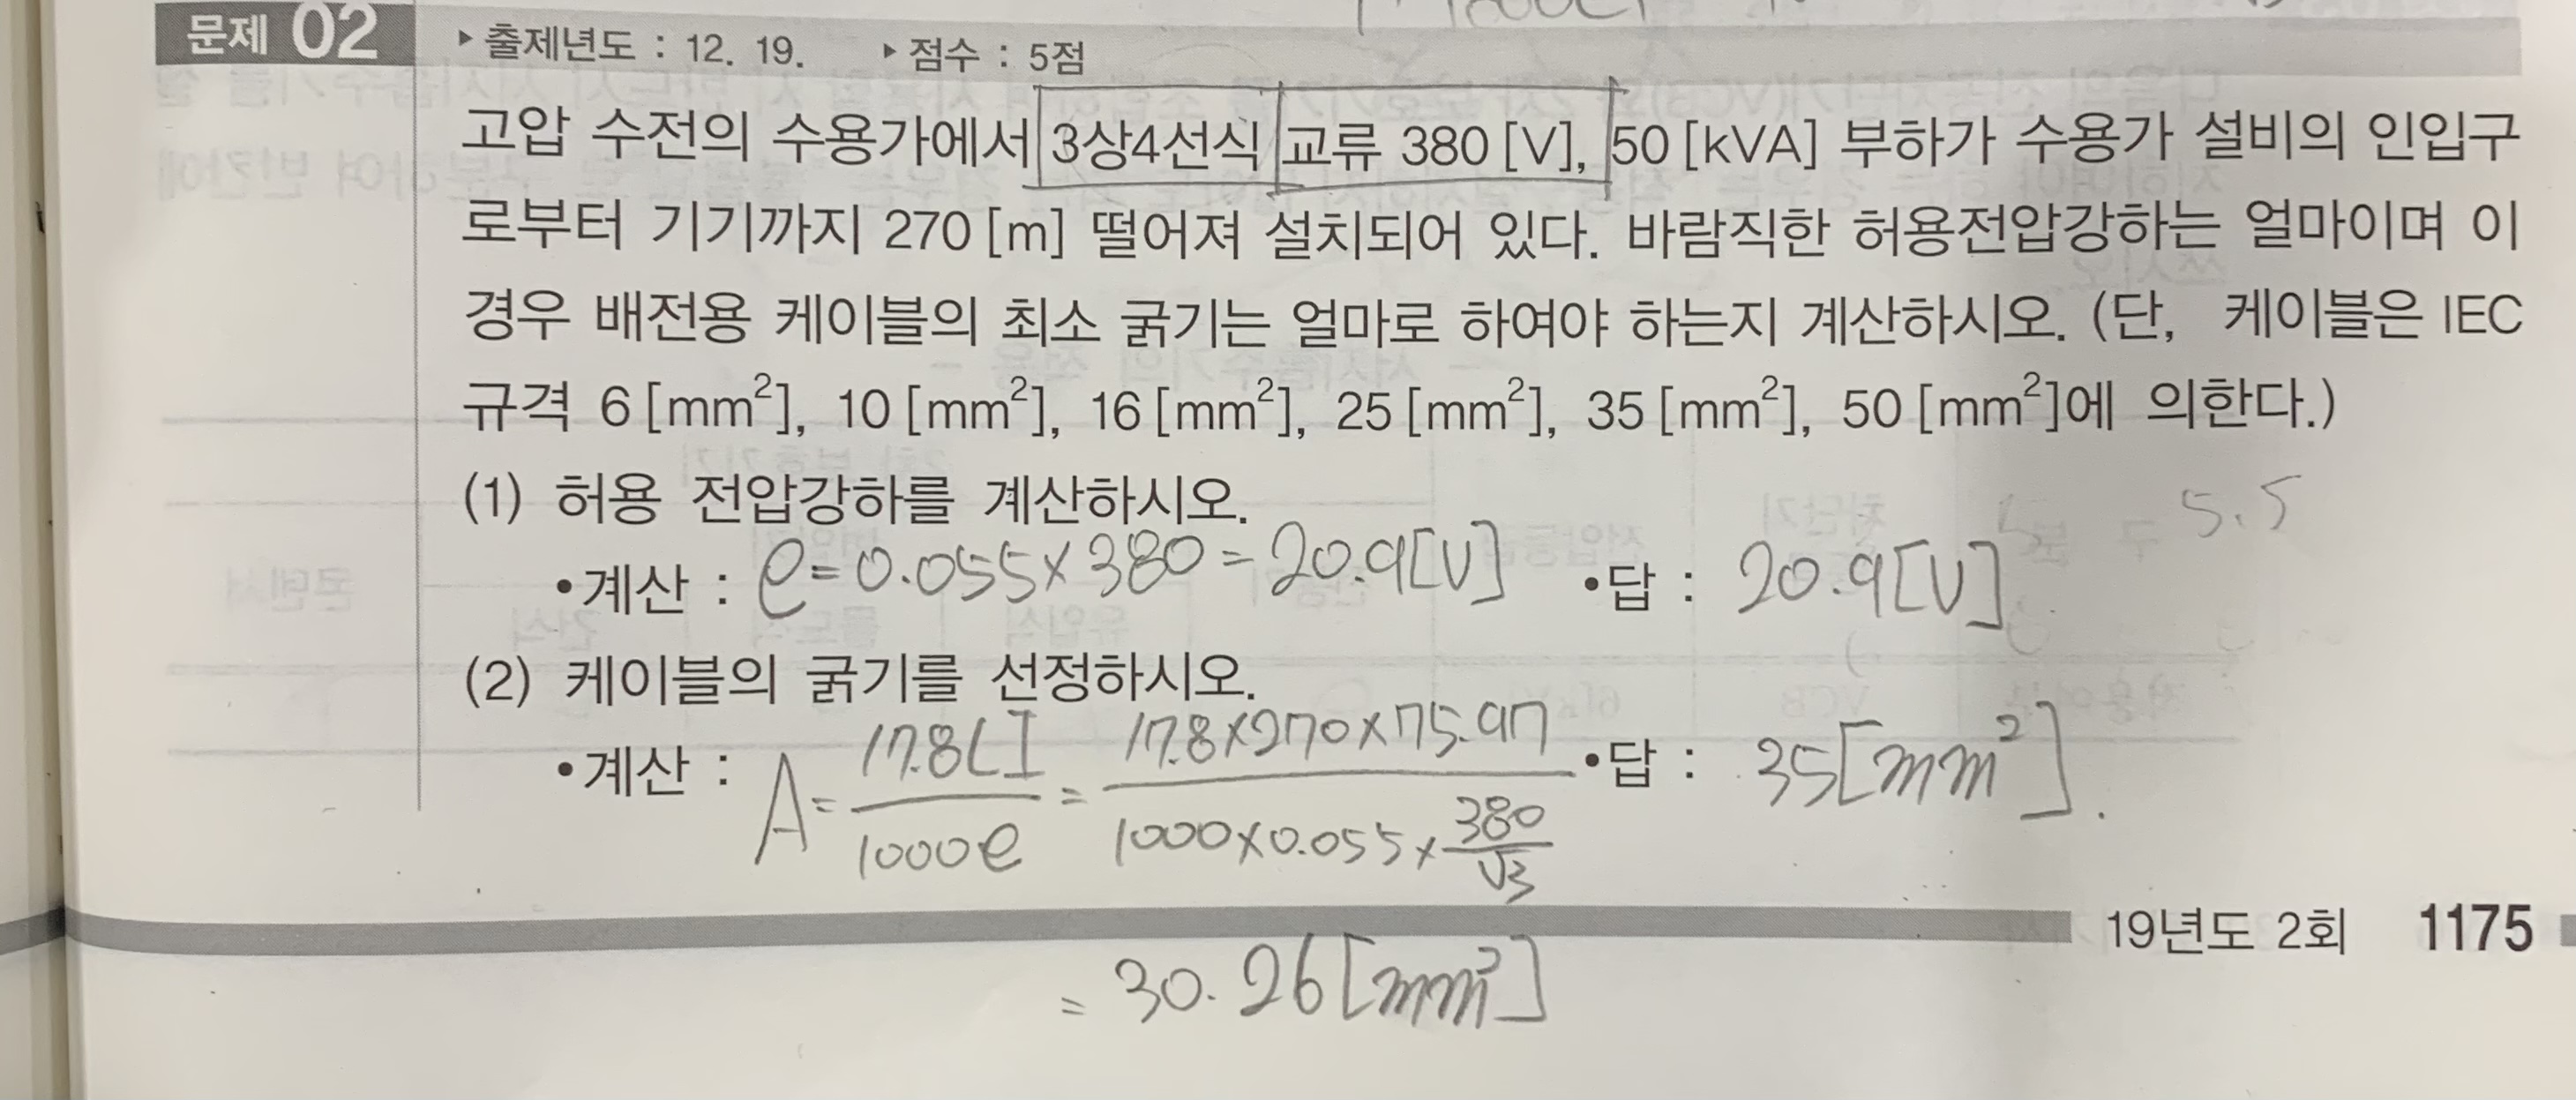 문제 02 ▸ 출제년도 : 12. 19. ▸ 점수 : 5점
고압 수전의 수용가에서 3상4선식 교류 380 [V], 50 [kVA] 부하가 수용가 설비의 인입구
로부터 기기까지 270 [m] 떨어져 설치되어 있다. 바람직한 허용전압강하는 얼마이며 이
경우 배전용 케이블의 최소 굵기는 얼마로 하여야 하는지 계산하시오. (단, 케이블은 IEC
규격 6 [mm²], 10 [mm²], 16 [mm²], 25 [mm²], 35 [mm²], 50 [mm²]에 의한다.)
(1) 허용 전압강하를 계산하시오.
5.5
•계산 : e = 0.055 × 380 = 20.9[V] •답 : 20.9[V]
(2) 케이블의 굵기를 선정하시오.
•계산 : A = 17.8LI / 1000e = 17.8×270×75.97 / 1000×0.055×380/√3 •답 : 35[mm²].
19년도 2회 1175
= 30.26[mm²]